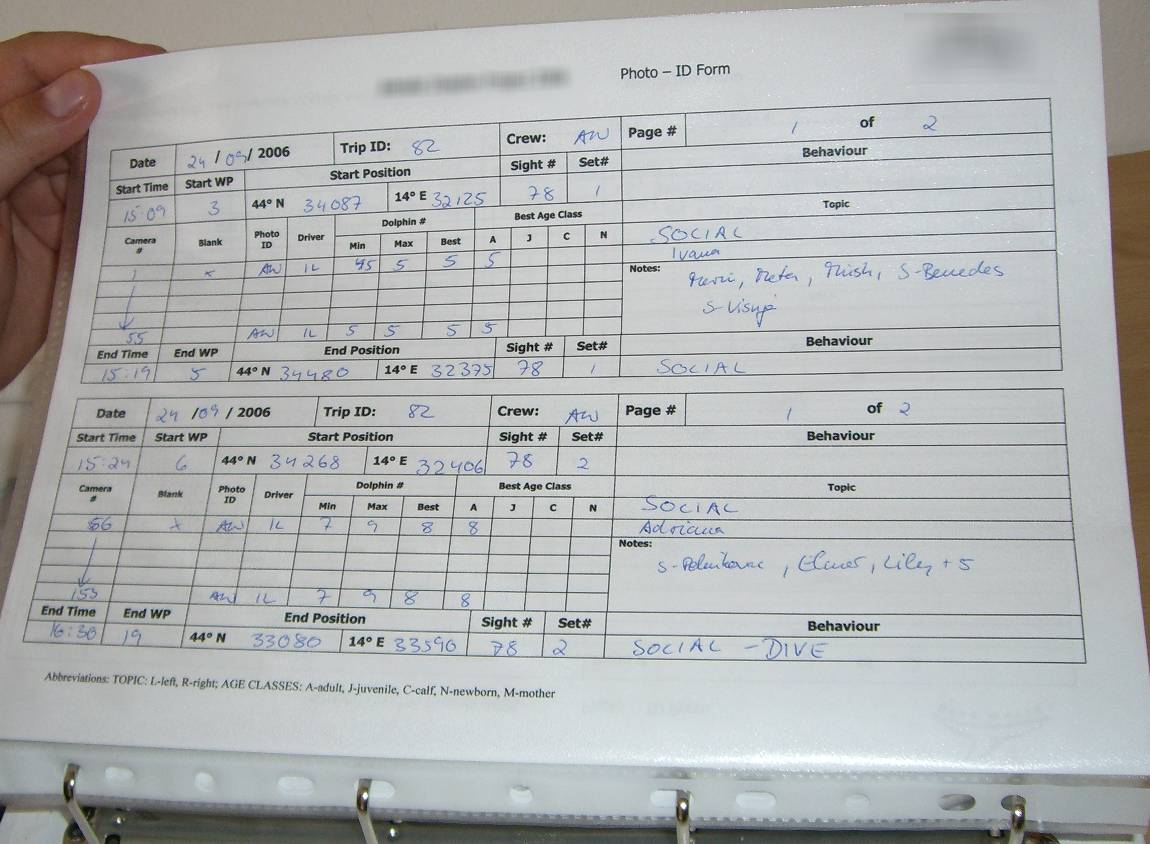 Photo – ID Form
Date 24 / 09 / 2006 Trip ID: 82 Crew: AW Page # 1 of 2
Start Time Start WP Start Position Sight # Set# Behaviour
15:09 3 44° N 34087 14° E 32125 78 1
Camera # Blank Photo ID Driver Dolphin # Best Age Class Topic
Min Max Best A J C N SOCIAL
1 x AW IL 5 5 5 5 Ivana
Notes: S-Benedes
S-Visnja
55 AW IL 5 5 5 5
End Time End WP End Position Sight # Set# Behaviour
15:19 5 44° N 34480 14° E 32375 78 1 SOCIAL
Date 24 / 09 / 2006 Trip ID: 82 Crew: AW Page # 1 of 2
Start Time Start WP Start Position Sight # Set# Behaviour
15:24 6 44° N 34268 14° E 32406 78 2
Camera # Blank Photo ID Driver Dolphin # Best Age Class Topic
Min Max Best A J C N SOCIAL
56 x AW IL 7 9 8 8 Adriana
Notes: Elmer, Liley + 5
153 AW IL 7 9 8 8
End Time End WP End Position Sight # Set# Behaviour
16:30 19 44° N 33080 14° E 33590 78 2 SOCIAL - DIVE
Abbreviations: TOPIC: L-left, R-right; AGE CLASSES: A-adult, J-juvenile, C-calf, N-newborn, M-mother